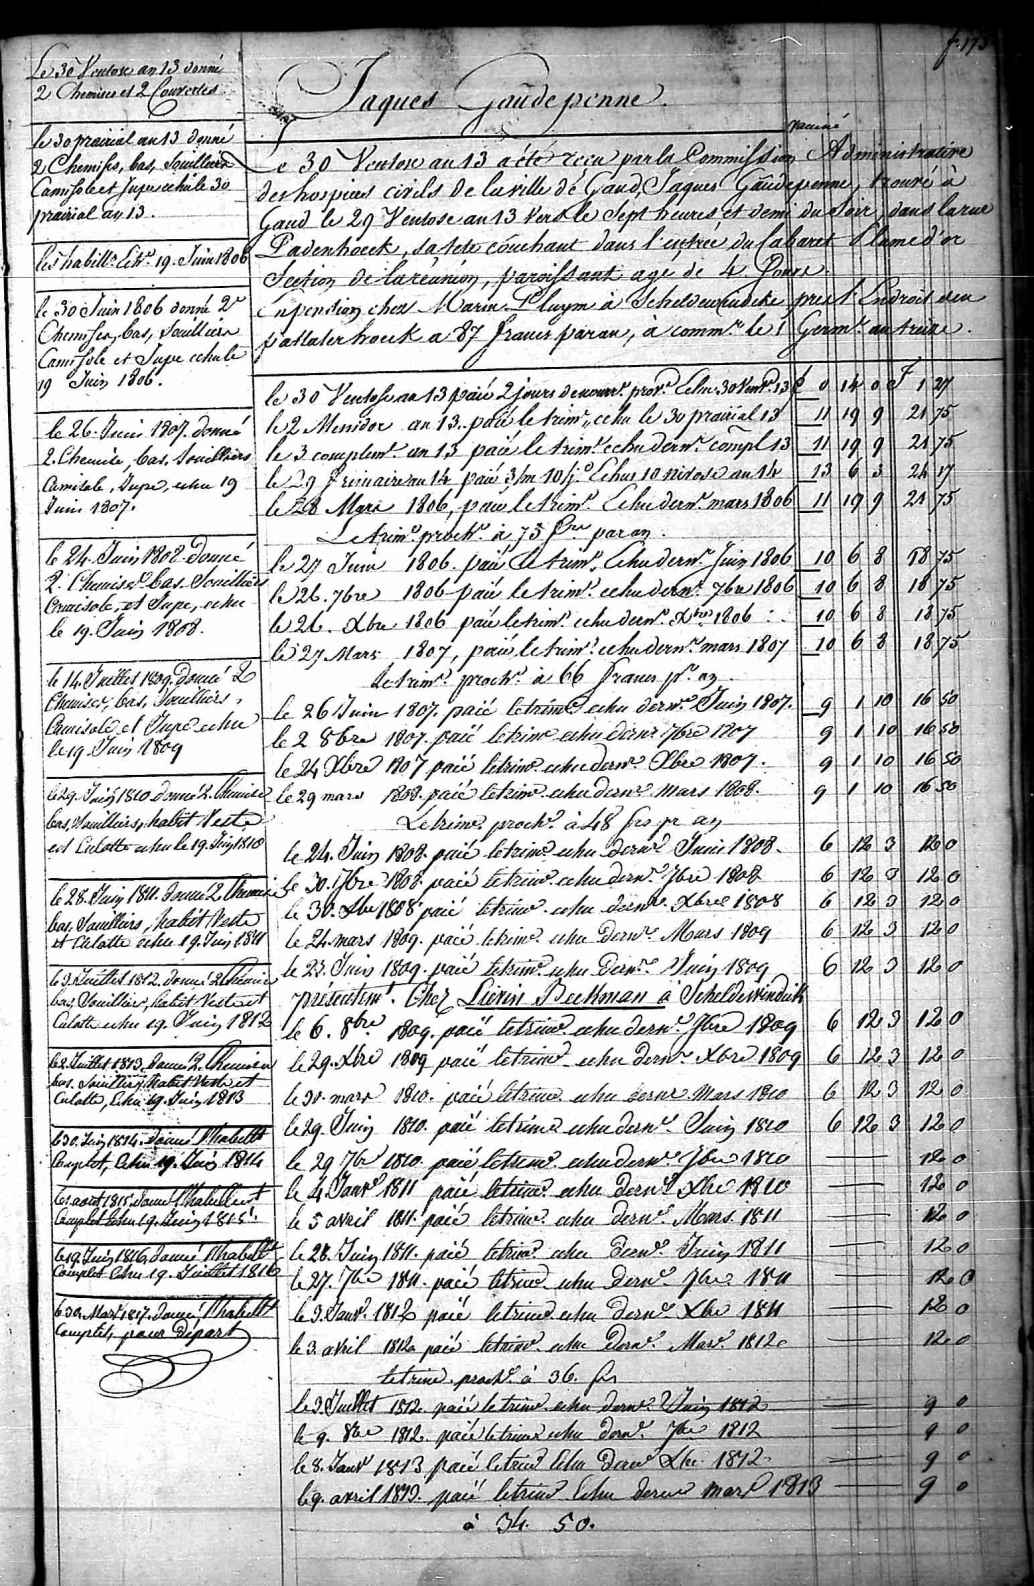 f. 173
Jaques Gaudepenne.
Le 30 Ventose an 13 donné
2 Chemises et 2 Couvertes
le 30 prairial an 13 donné
2 Chemises, bas, Souilliers
Camisole et jupe echu le 30
prairial an 13.
les habill.s echu 19. Juin 1806
le 30 Juin 1806 donné 2
Chemises, bas, Souilliers
Camisole et Jupe echu le
19 Juin 1806.
le 26. Juin 1807. donné
2. Chemise, bas, Souilliers
Camisole, Jupe, echu 19
Juin 1807.
le 24. Juin 1808. donné
2. Chemises bas. Souilliers
Camisole, et Jupe, echu
le 19. Juin 1808.
le 14. Juillet 1809. Donné 2
Chemises, bas, Souilliers,
Camisole, et Jupe echu
le 19. Juin 1809
le 29. Juin 1810 donné 2. Chemise
bas, Souilliers, habit Veste
et Culotte echu le 19. Juin 1810
le 28. Juin 1811. donné 2 Chemise
bas, Souilliers, habit Veste
et Culotte echu 19. Juin 1811
le 3. Juillet 1812. donné 2 Chemise
bas, Souillier, habit Veste et
Culotte echu 19. Juin 1812
le 2. Juillet 1813, donné 2. Chemises
bas. Souilliers habit Veste et
Culotte, Echu 19. Juin 1813
le 30. Juin 1814. donné l'habillt
Complet, Echu 19. Juin 1814
le aout 1815. donné l'habillemt
Complet Echu 19. Juin 1815.
le 19. Juin 1816, donné l'habillt
Complet Echu 19. Juillet 1816
le 30. Mars 1817. donné l'habillt
Complet, pour Départ
nommé
Le 30 Ventose an 13 a été reçu par la Commission Administrative
des hospices civils de la ville de Gand, Jaques Gaudepenne, trouvé à
Gand le 29 Ventose an 13 vers le Sept heures et demi du Soir, dans la rue
Padenhoek, sa tete couchant dans l'entrée du Cabaret Plume d'or
Section de la réunion, paroissant agé de 4 Jours.
en pension chez Marin Pluym à Scheldewindeke près l'Endroit den
pattaterhoeck a 87 francs par an, à comm.r le 1 Germ.l an treize.
le 30 Ventose an 13 paié 2 jours de nourr.e prov.e Echu 30 Vent. 13 £ 0 14 0 F 1 27
le 2 Messidor an 13. paié le trim.e echu le 30 prairial 13 11 19 9 21 75
le 3 complem.t an 13 paié le trim.e echu dern.r compl 13 11 19 9 21 75
le 29 frimaire an 14 paié 3/m 10 j.s Echu 10 nivose an 14 13 6 3 24 17
le 28 Mars 1806, paié le trim.e Echu dern.r mars 1806 11 19 9 21 75
Le trim.e proch.n à 75 frs par an.
le 27 Juin 1806. paié le trim.e Echu dern.r Juin 1806 10 6 8 18 75
le 26. 7bre 1806 paié le trim.e echu dern.r 7bre 1806 10 6 8 18 75
le 26. Xbre 1806 paié le trim.e echu dern.r Xbre 1806 10 6 8 18 75
le 27 Mars 1807, paié le trim.e echu dern.r mars 1807 10 6 8 18 75
Le trim.e proch.n à 66 francs p.r an.
le 26 Juin 1807. paié le trime echu dern.r Juin 1807. 9 1 10 16 50
le 2 8bre 1807. paié le trime echu dernr 7bre 1807 9 1 10 16 50
le 24 Xbre 1807 paié le trime echu dern.r Xbre 1807. 9 1 10 16 50
le 29 mars 1808. paié le trime echu dern.r mars 1808. 9 1 10 16 50
Le trime proch.n à 48 frs pr an
le 24. Juin 1808. paié le trime echu dern.r Juin 1808. 6 12 3 12 0
le 30. 7bre 1808. paié le trime echu dern.r 7bre 1808 6 12 3 12 0
le 30. Xbre 1808 paié le trime echu dern.r Xbre 1808 6 12 3 12 0
le 24. mars 1809. paié le trime echu dern.r Mars 1809 6 12 3 12 0
le 23. Juin 1809. paié le trime echu dern.r Juin 1809 6 12 3 12 0
présentem.t Chez Lievin Beekman à Scheldewindeke
le 6. 8bre 1809. paié le trime echu dern.r 7bre 1809 6 12 3 12 0
le 29. Xbre 1809 paié le trime echu dern.r Xbre 1809 6 12 3 12 0
le 30. mars 1810. paié le trime echu dernr Mars 1810 6 12 3 12 0
le 29. Juin 1810. paié le trime echu dern.r Juin 1810 6 12 3 12 0
le 29 7bre 1810. paié le trime echu dern.r 7bre 1810 12 0
le 4. Janv.r 1811 paié le trime echu dern.r Xbre 1810 12 0
le 5 avril 1811. paié le trime echu dern.r Mars 1811 12 0
le 28. Juin 1811. paié le trime echu dern.r Juin 1811 12 0
le 27. 7bre 1811. paié le trime echu dern.r 7bre 1811 12 0
le 3. Janv.r 1812 paié le trime echu dern.r Xbre 1811 12 0
le 3. avril 1812 paié le trime echu dern.r Mars 1812 12 0
le trime proch.n à 36. frs
le 3. Juillet 1812. paié le trime echu dern.r Juin 1812 9 0
le 9. 8bre 1812. paié le trime echu dern.r 7bre 1812 9 0
le 8. Janvr 1813 paié le trime Echu dernr Xbre 1812. 9 0
le 9. avril 1813. paié le trime Echu dernr mars 1813 9 0
à 34. 50.